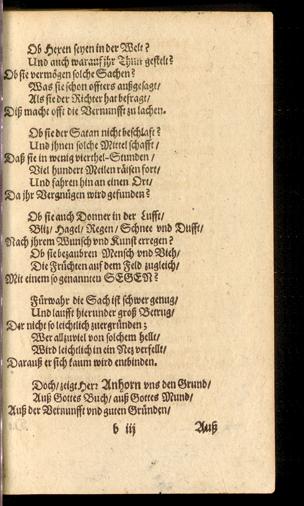 Ob Hexen seyen in der Welt?
Und auch warauf jhr Thun gestelt?
Ob sie vermögen solche Sachen?
Was sie schon offters außgesagt/
Als sie der Richter hat befragt/
Diß macht offt die Vernunfft zu lachen.
Ob sie der Satan nicht beschlaft?
Und jhnen solche Mittel schafft/
Daß sie in wenig vierthel-Stunden/
Viel hundert Meilen räisen fort/
Und fahren hin an einen Ort/
Da jhr Vergnügen wird gefunden?
Ob sie auch Donner in der Lufft/
Bliz/ Hagel/ Regen/ Schnee vnd Dufft/
Nach jhrem Wunsch vnd Kunst erregen?
Ob sie bezaubren Mensch vnd Vieh/
Die Früchten auf dem Feld zugleich/
Mit einem so genannten SEGEN?
Fürwahr die Sach ist schwer genug/
Und laufft hierunder groß Betrug/
Der nicht so leichtlich zuergründen;
Wer allzuviel von solchem hellt/
Wird leichtlich in ein Nez verfellt/
Darauß er sich kaum wird entbinden.
Doch/ zeigt Herr Anhorn vns den Grund/
Auß Gottes Buch/ auß Gottes Mund/
Auß der Vernunfft vnd guten Gründen/
b iij Auß